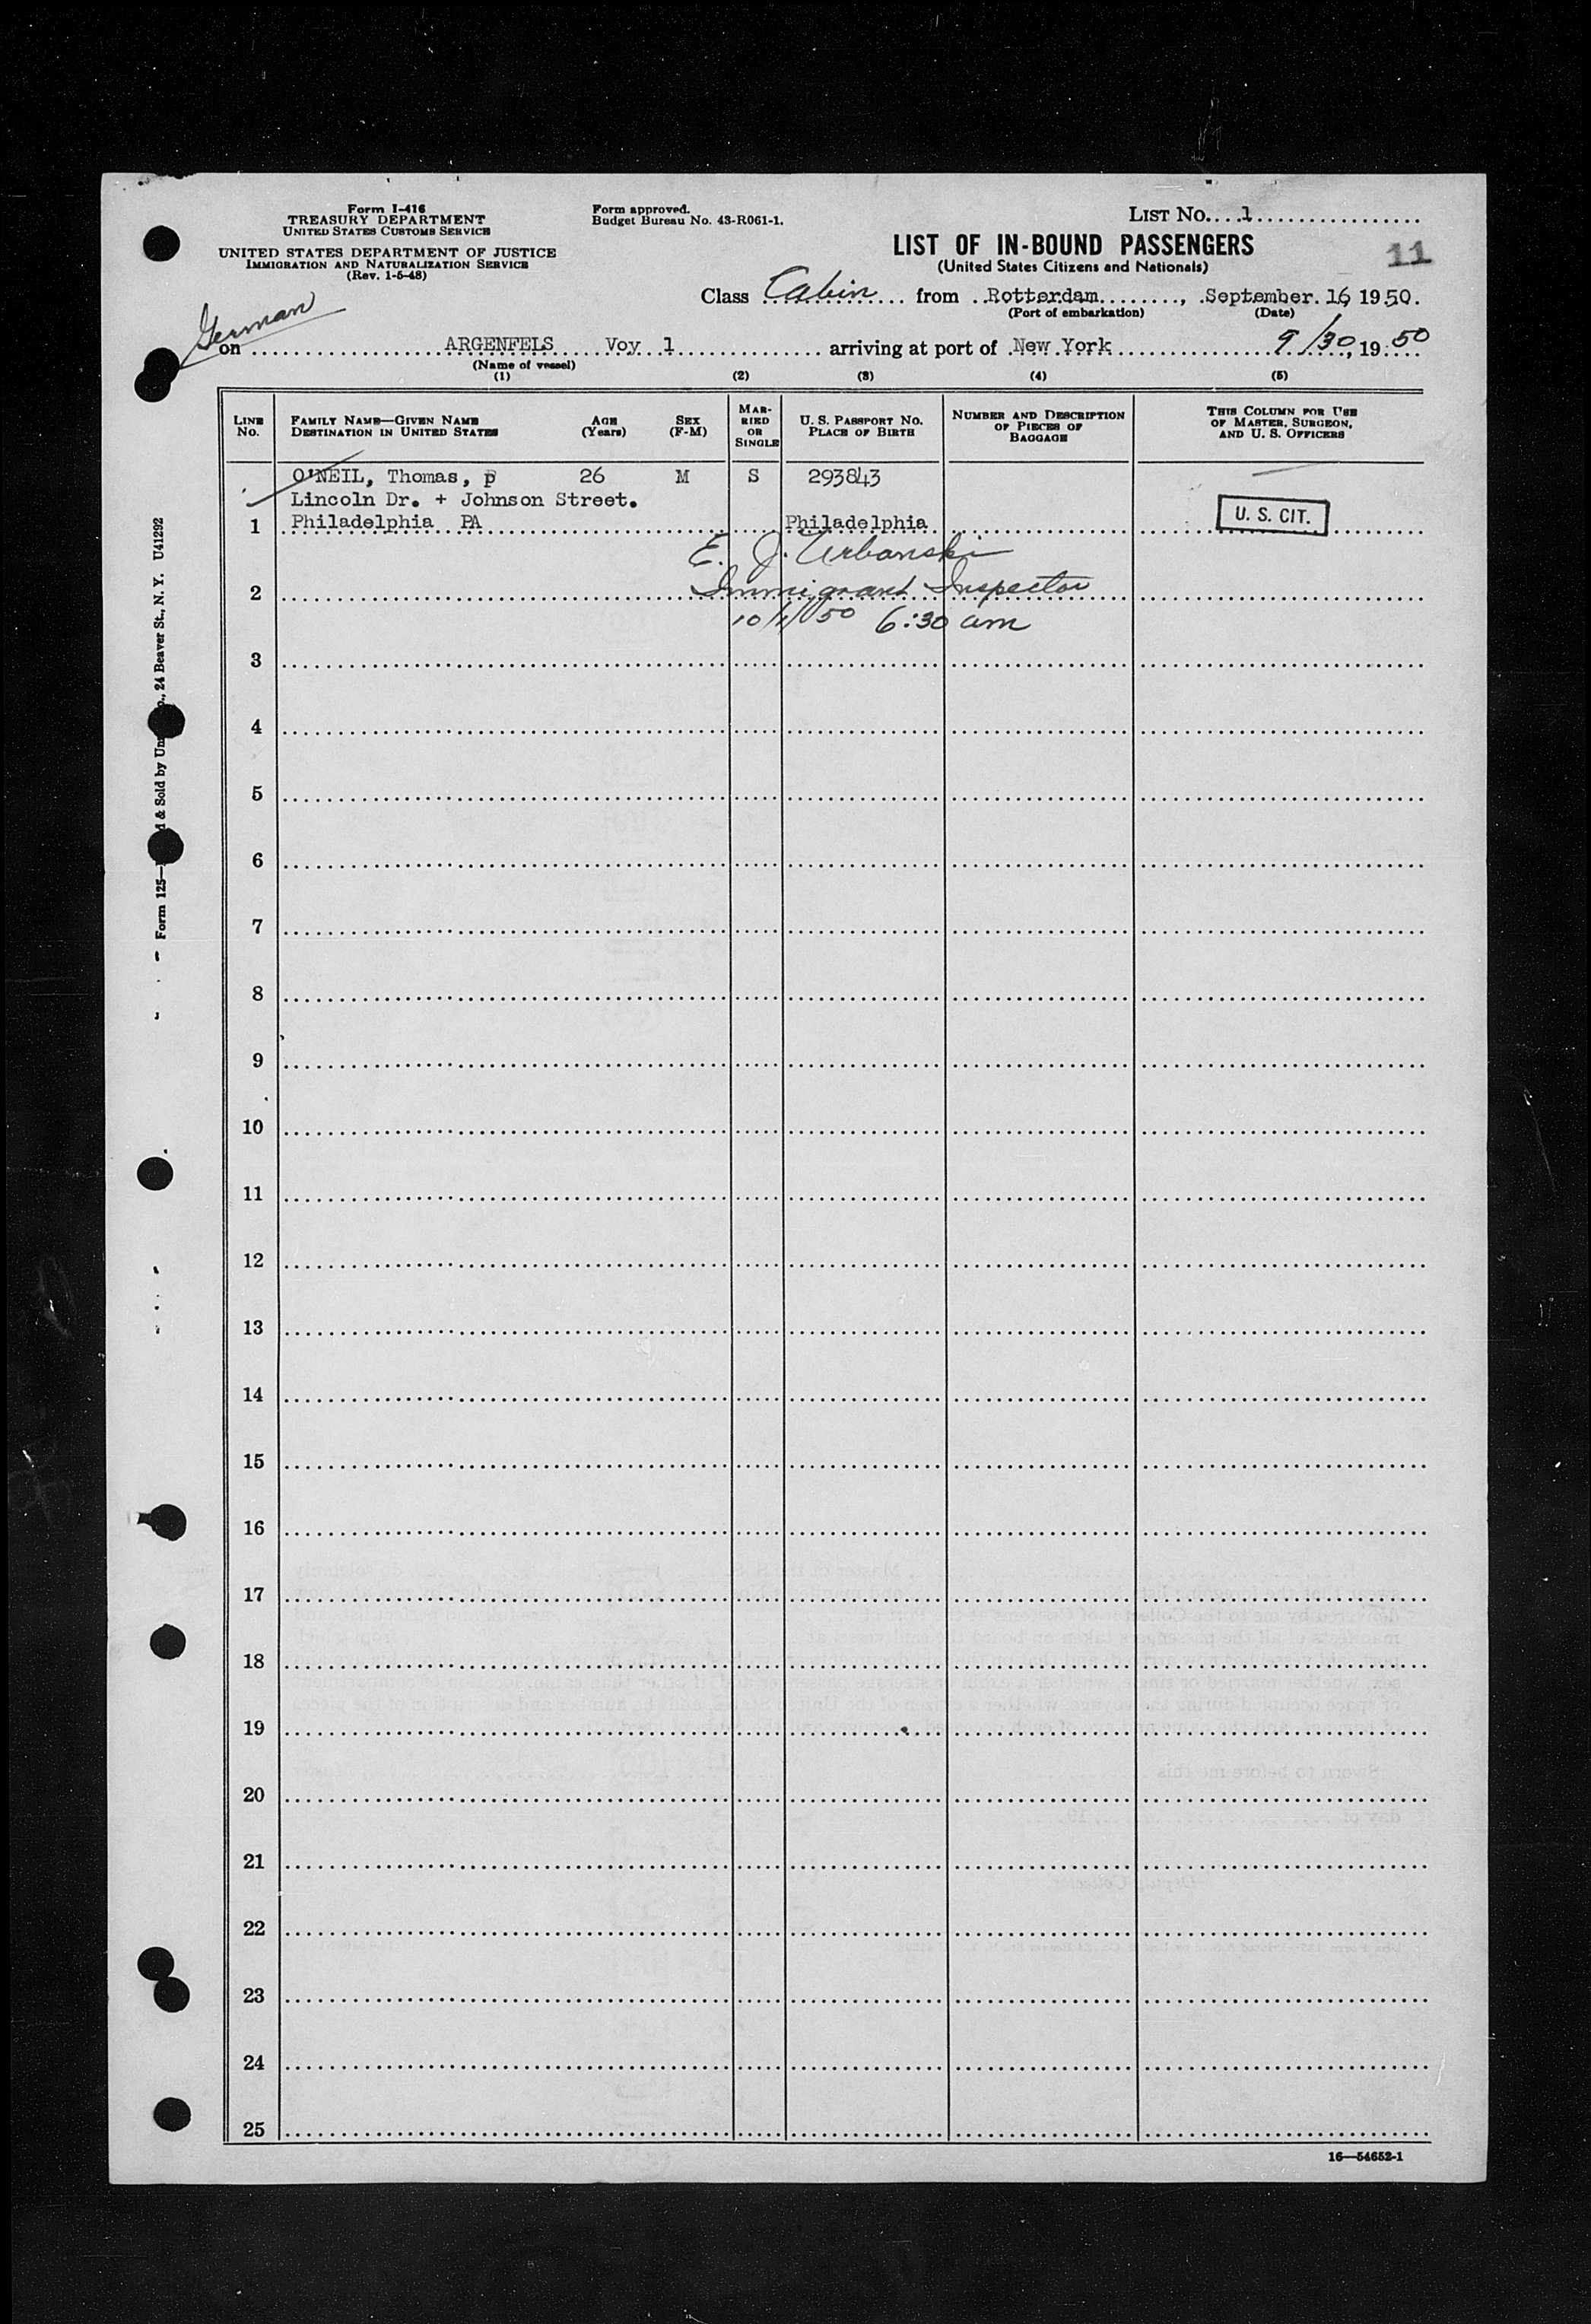 Form I-416
TREASURY DEPARTMENT
UNITED STATES CUSTOMS SERVICE
UNITED STATES DEPARTMENT OF JUSTICE
IMMIGRATION AND NATURALIZATION SERVICE
(Rev. 1-5-48)
Form approved.
Budget Bureau No. 43-R061-1.
LIST No. 1
LIST OF IN-BOUND PASSENGERS
(United States Citizens and Nationals)
11
Class Cabin from Rotterdam, September 16, 1950.
(Port of embarkation) (Date)
German
on ARGENFELS Voy 1 arriving at port of New York 9/30, 1950
(Name of vessel)
(1) (2) (3) (4) (5)
LINE No.
FAMILY NAME—GIVEN NAME
DESTINATION IN UNITED STATES
AGE (Years)
SEX (F-M)
MARRIED OR SINGLE
U. S. PASSPORT NO.
PLACE OF BIRTH
NUMBER AND DESCRIPTION OF PIECES OF BAGGAGE
THIS COLUMN FOR USE OF MASTER, SURGEON, AND U. S. OFFICERS
O'NEIL, Thomas, p 26 M S 293843
Lincoln Dr. + Johnson Street.
1 Philadelphia PA Philadelphia
U. S. CIT.
E. J. Urbanski
2 Immigrant Inspector
10/1/50 6:30 am
3
4
5
6
7
8
9
10
11
12
13
14
15
16
17
18
19
20
21
22
23
24
25
16—54652-1
Form 125— & Sold by 24 Beaver St., N. Y. U41292